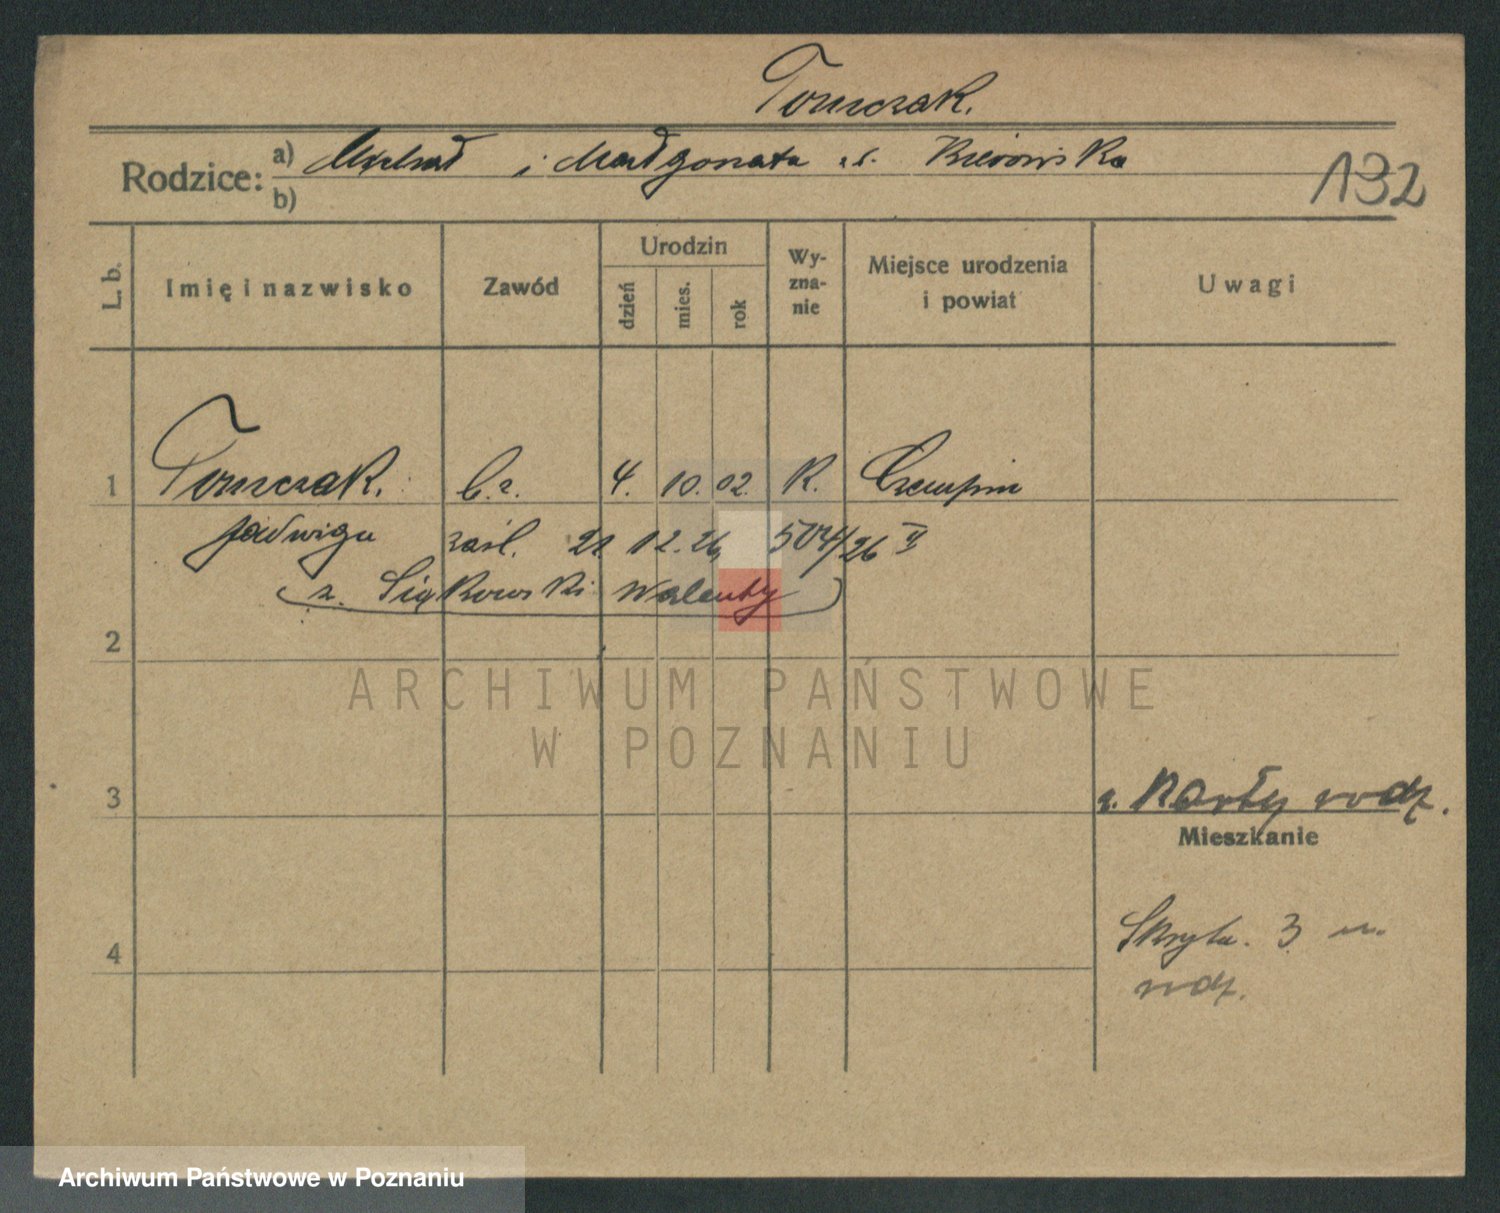 Tomczak.
Rodzice: a) Michał i Małgorzata
b)
132
L. b.
Imię i nazwisko
Zawód
Urodzin
dzień
mies.
rok
Wy-
zna-
nie
Miejsce urodzenia
i powiat
Uwagi
1 Tomczak. b.z. 4. 10. 02. K. Czempiń
Jadwiga zaśl. 21 12. 26, 504/26 II
(z. Siąkowski Walenty)
2
ARCHIWUM PAŃSTWOWE
W POZNANIU
3
z. Karty rodz.
Mieszkanie
Skryta. 3 m.
rodz.
4
Archiwum Państwowe w Poznaniu